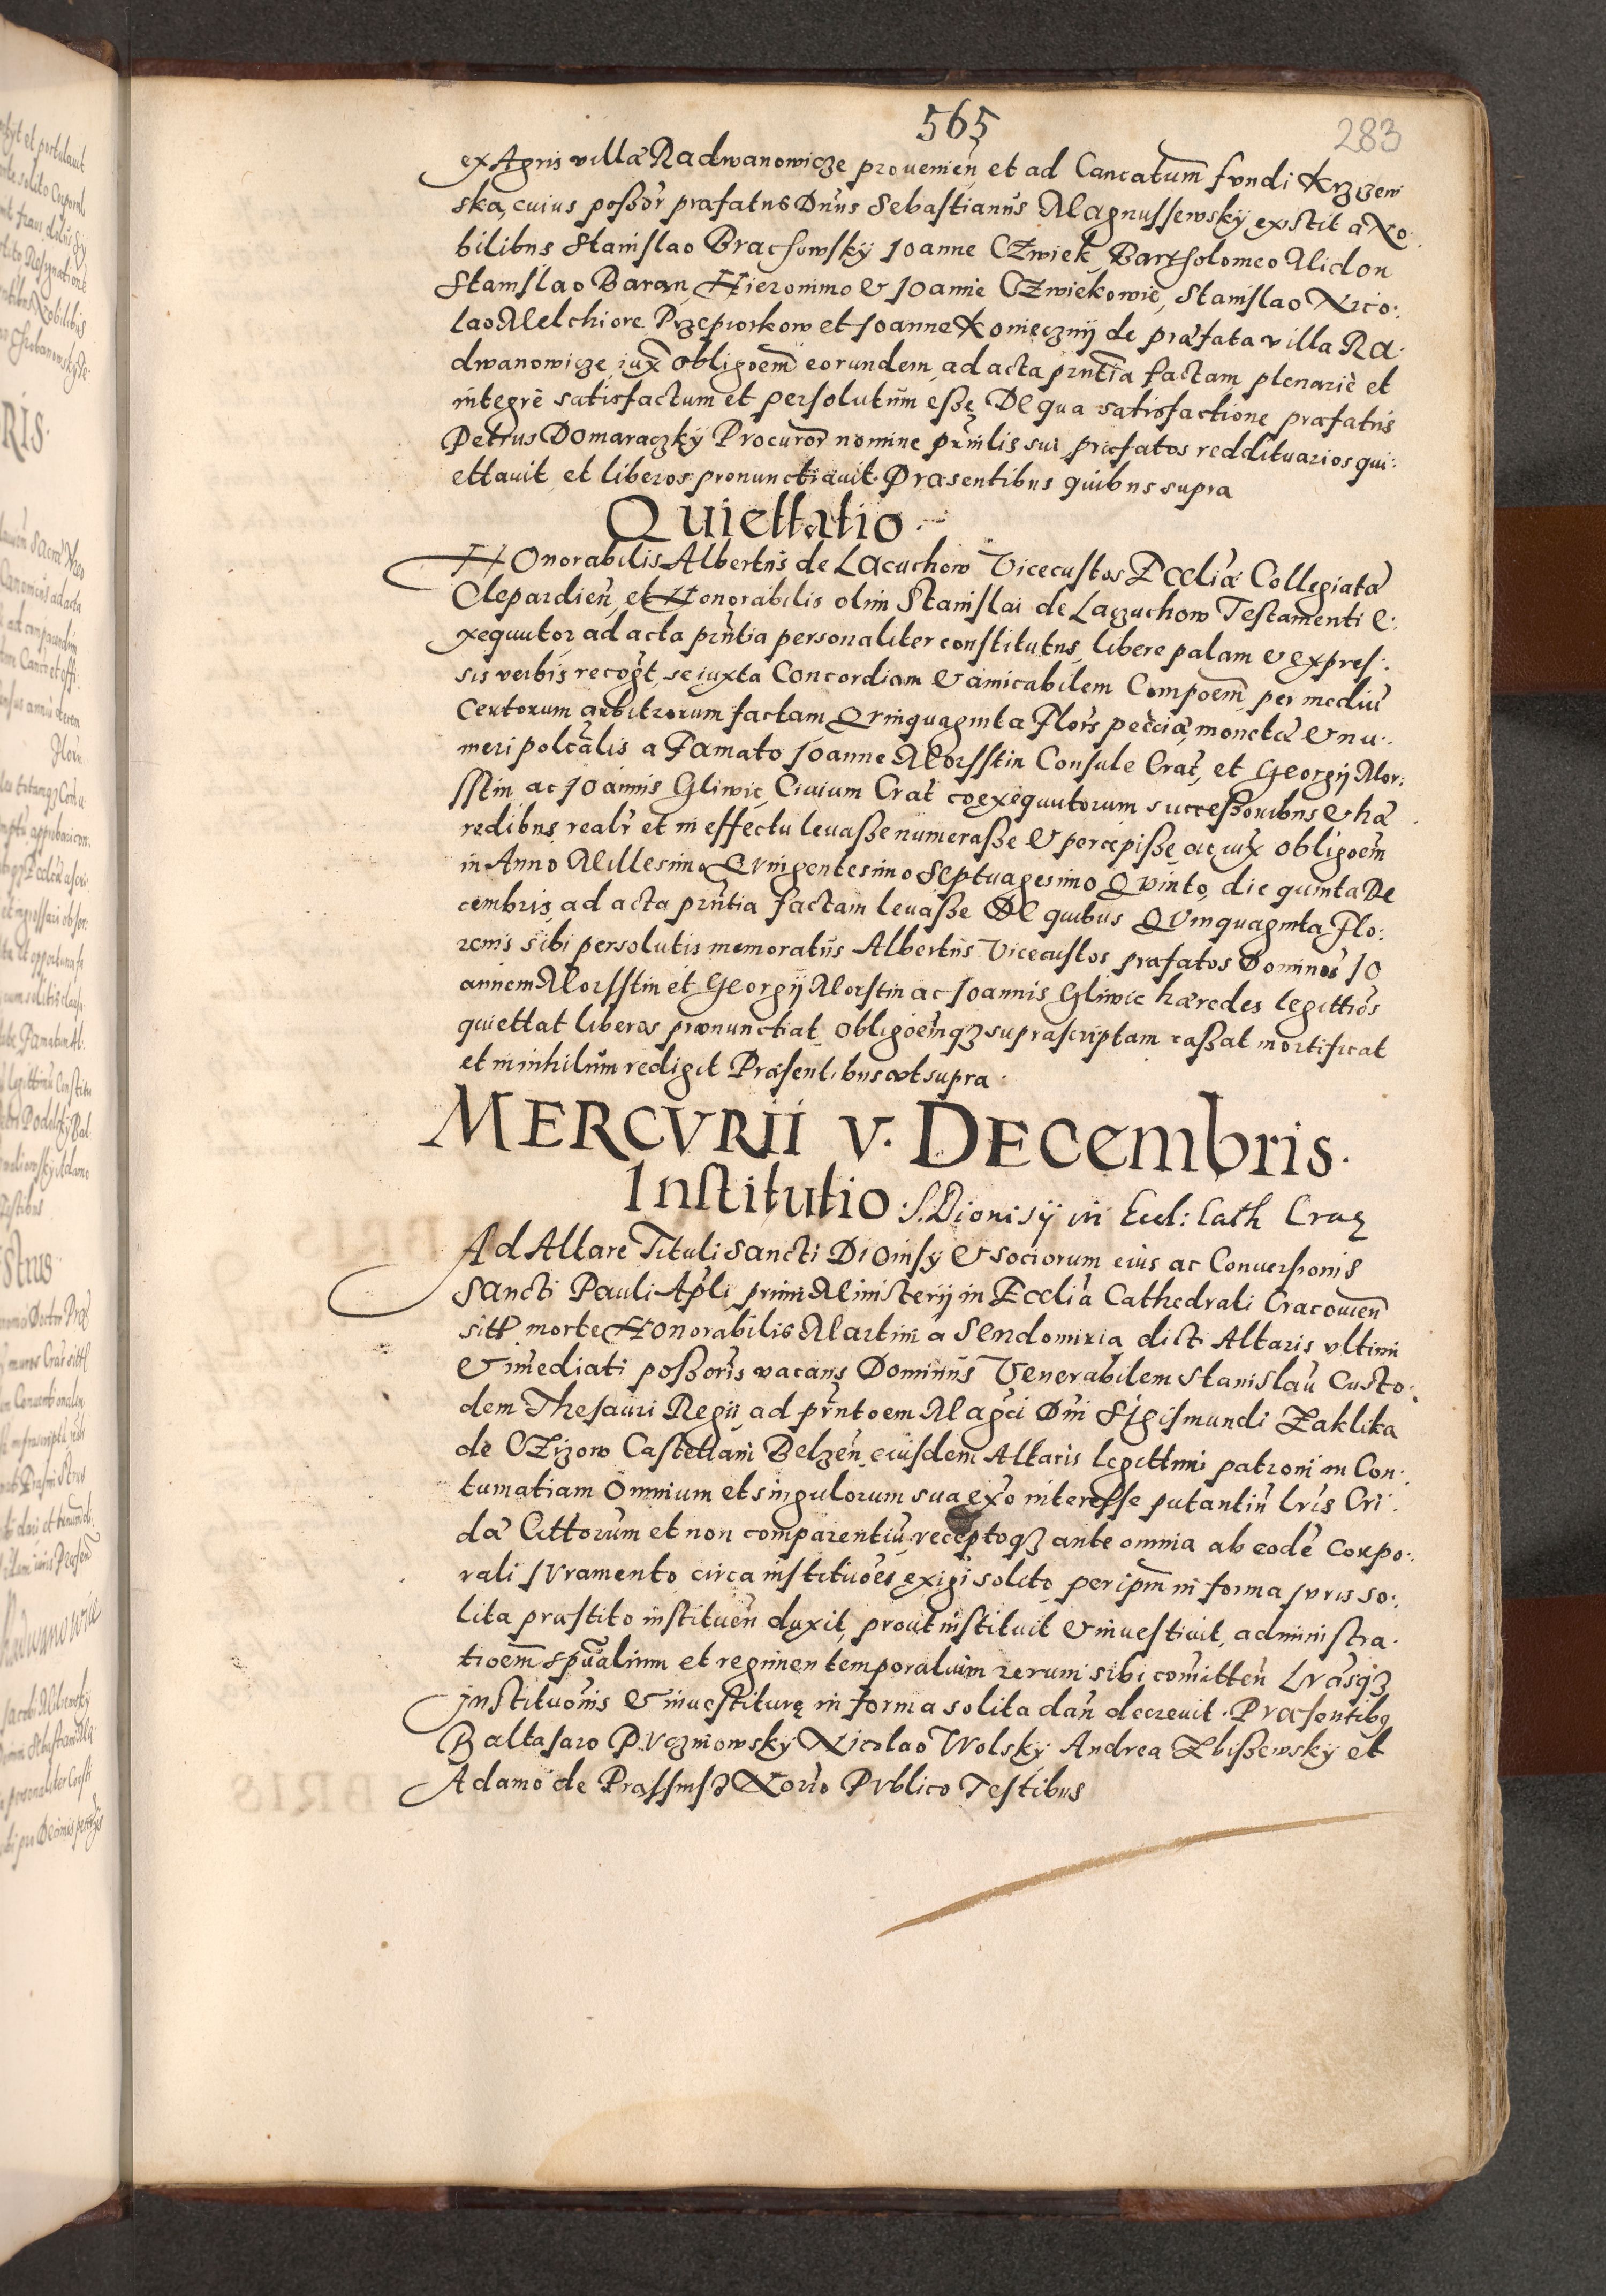 565
283
ex Agris villæ Radwanowicze prouenien̄ et ad Cancatum fvndi Krzizew
ska, cuius poßor̄ præfatus Dn̄us Sebastianus Magnussewskÿ existit a No:
bilibus Stanislao Brachowskÿ Ioanne CZwiek Bartholomeo Micłon
Stanislao Baran Hieronimo & Ioanne CZwiekowie, Stanislao Nico:
lao Melchiore Przepiorkow et Ioanne Koniecznÿ de præfata villa Ra:
dwanowicze iux̄ obligoem̄ eorundem, ad acta prn̄tia factam plenariè et
integrè satisfactum et persolutum eße De qua satisfactione præfatus
Petrus Domaraczkÿ Procuror̄ nomine prin̄lis sui præfatos reddituarios qui:
ettauit et liberos pronunctiauit. Præsentibus quibus supra
Quiettatio
HOnorabilis Albertus de Lacuchow Vicecustos Ecclīæ Collegiatæ
Clepardien̄ et Honorabilis olim Stanislai de Laczuchow Testamenti e:
xequutor ad acta prn̄tia personaliter constitutus, libere palam & expres:
sis verbis recog̃t, se iuxta Concordiam & amicabilem Compoem̄ per mediū
Certorum arbitrorum factam Qvinquaginta Flor̄s pecc̄iæ monetæ & nu:
meri polcālis a Famato Ioanne Morsstin Consule Crac̄ et Georgÿ Mor:
sstin ac Ioannis Gliwic Ciuium Crac̄ coexequutorum succeßoribus & hæ
redibus realr̄ et in effectu leuaße numeraße & percepiße ac iux̄ obligoem̄
in Anno Millesimo Qvingentesimo Septuagesimo Qvinto, die quinta De
cembris ad acta prn̄tia factam leuaße De quibus Qvinquaginta Flo:
renis sibi persolutis memoratus Albertus Vicecustos præfatos Dominos Io
annem Morsstin et Georgÿ Morstin ac Ioannis Gliwic hæredes legittīos
quiettat liberos pronunctiat obligoem̄qȝ suprascriptam caßat mortificat
et in nihilum redigit Præsentibus vt supra.
MERCVRII V. DECembris.
Institutio S. Dionisÿ in Eccl: Cath Crac̨
Ad Altare Tituli Sancti Dionisÿ & sociorum eius ac Conuersionis
Sancti Pauli Apl̄i primi Ministerÿ in Ecclīa Cathedrali Cracouien̄
sitt̄ morte Honorabilis Martini à Sendomiria dicti Altaris vltimi
& imediati poßoris vacans Dominus Venerabilem Stanislaū Custo:
dem Thesauri Regii ad prn̄toem Magc̄i Dn̄i Sigismundi Zaklika
de CZizow Castellani Belzen̄ eiusdem Altaris legittimi patroni in Con:
tumatiam Omnium et singulorum sua ex̄o interesse putantiū Lr̄is Cri:
dæ Cittorum et non comparentiū receptoqȝ ante omnia ab eodē Corpo:
rali Ivramento circa institvōes exigi solito, per ipm̄ in forma Ivris so:
lita præstito instituen̄ duxit, prout instituit & inuestiuit, administra:
tioem̄ spūalium et regimen temporalium rerum sibi comitten̄ Lr̄asqȝ
institvōnis & inuestituræ in forma solita dan̄ decreuit. Præsentibq
Baltasaro Pvczniowskÿ Nicolao Wolskÿ Andrea Zbißewskÿ et
Adamo de Prassnisȝ Nor̄io Pvblico Testibus